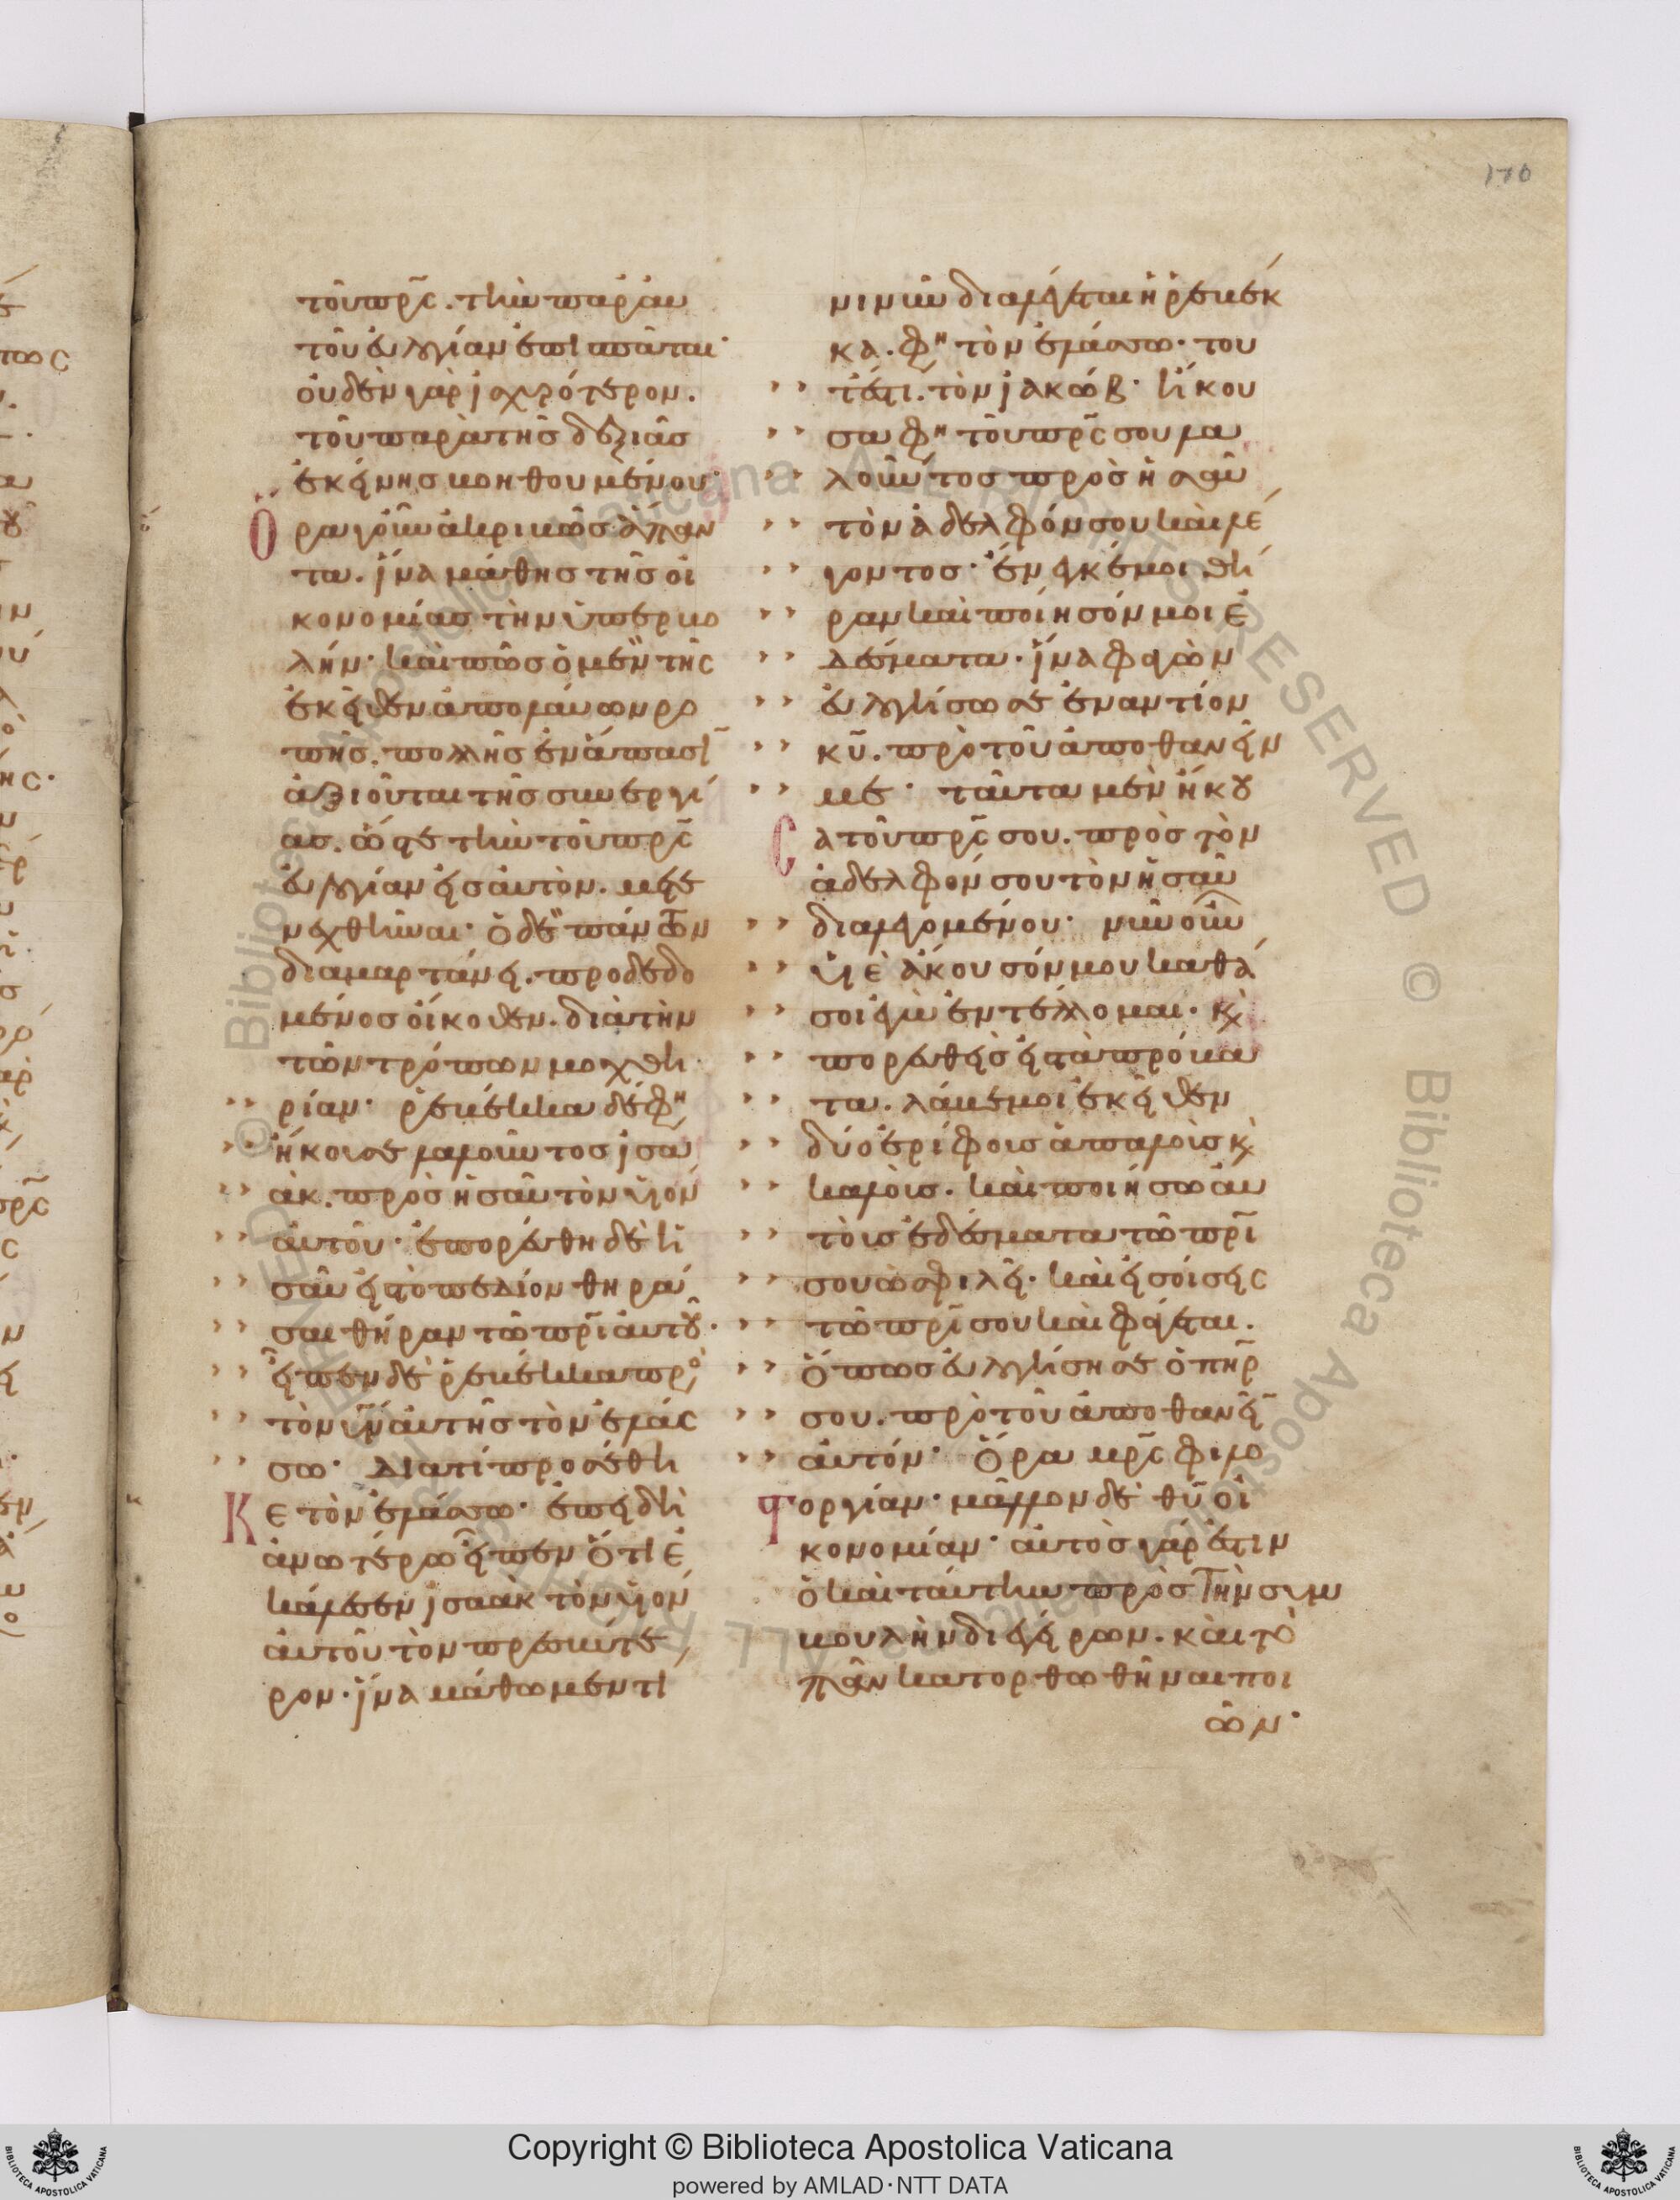 170
τοῦ πρ̅ς. τὴν παρ' αὐ
τοῦ εὐλογίαν ἐπισπᾶται·
οὐδὲν γὰρ ἰσχυρότερον.
τοῦ παρὰ τῆς δεξιᾶς
ἐκείνης βοηθουμένου·
Ὅρα γοῦν ἀκριβῶς ἅπαν
τα. ἵνα μάθης τῆς οἰ
κονομίας τὴν ὑπερβο
λήν· καὶ πῶς ὁ μὲν τῆς
ἐκεῖθεν ἀπολαύων ρο
πῆς. πολλῆς ἐν ἅπασι
ἀξιοῦται τῆς συνεργί
ας. ὥστε τὴν τοῦ πρ̅ς
εὐλογίαν εἰς αὐτὸν. μετε
νεχθῆναι· ὁ δὲ πάντων
διαμαρτάνει. προδεδο
μένος οἴκοθεν. διὰ τὴν
τῶν τρόπων μοχθη
ρίαν· ῥεβέκκα δέ φη
ἤκουσε λαλοῦντος ἰσα
ὰκ. πρὸς ἠσαῦ τὸν υἱὸν
αὐτοῦ· ἐπορεύθη δὲ ἠ
σαῦ εἰς τὸ πεδίον θηρά
σαι θήραν τῶ πρ̅ι αὐτοῦ·
εἶπεν δὲ ῥεβέκκα πρὸς
τὸν υἱὸν αὐτῆς τὸν ἐλάσ
σω· Διατί προσέθη
Κε τὸν ἐλάσσω· ἐπειδὴ
ἀνωτέρω εἶπεν ὅτι ἐ
κάλεσεν ἰσαὰκ τὸν υἱὸν
αὐτοῦ τὸν πρεσβύτε
ρον· ἵνα μάθωμεν τί
νι νῦν διαλέγεται ἡ ῥεβέκ
κα. φη τὸν ἐλάσσω· του
τέστι. τὸν ἰακώβ· ἤκου
σα φη τοῦ πρ̅ς σου λα
λοῦντος πρὸς ἠσαῦ
τὸν ἀδελφόν σου καὶ λέ
γοντος· ἔνεγκέ μοι θή
ραν καὶ ποίησόν μοι ἐ
δέσματα· ἵνα φαγὼν
εὐλογήσω σε ἐναντίον
κ̅υ. πρὸ τοῦ ἀποθανεῖν
με· ταῦτα μὲν ἤκου
Σα τοῦ πρ̅ς σου. πρὸς τὸν
ἀδελφόν σου τὸν ἠσαῦ
διαλεγομένου· νῦν οὖν
υἱὲ ἄκουσόν μου καθά
σοι ἐγὼ ἐντέλλομαι· κ̀
πορευθεὶς εἰς τὰ πρόβα
τα. λάβε μοι ἐκεῖθεν
δύο ἐρίφους ἁπαλοὺς κ̀
καλούς. καὶ ποιήσω αὐ
τοὺς ἐδέσματα τῶ πρ̅ι
σου ὡς φιλεῖ. καὶ εἰσοίσεις
τῶ πρ̅ι σου καὶ φάγεται.
ὅπως εὐλογήση σε ὁ πηρ̅
σου. πρὸ τοῦ ἀποθανεῖ̅
αὐτόν· Ὅρα μρ̅ς φιλο
Στοργίαν· μᾶλλον δὲ θ̅υ οἰ
κονομίαν· αὐτὸς γάρ ἐστιν
ὁ καὶ ταύτην πρὸς τὴν συμ
βουλὴν διεγείρων. καὶ τὸ
πᾶν κατορθωθῆναι ποι
ῶν·
Copyright © Biblioteca Apostolica Vaticana
powered by AMLAD·NTT DATA